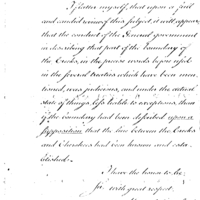 I flatter myself, that upon a full
and candid view of this subject, it will appear,
that the conduct of the General government
in describing that part of the boundary of
the Creeks, in the precise words before used
in the several treaties which have been men-
tioned, was judicious, and under the actual
state of things, less liable to exceptions, than
if the boundary had been described upon a
supposition that the line between the Creeks
and Cherokees had been known and esta-
blished.
I have the honor to be
Sir with great respect